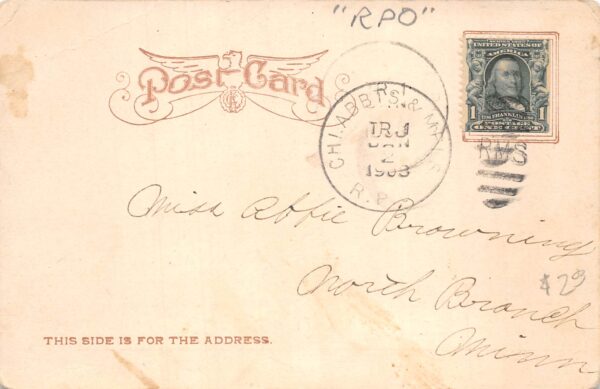 "RPO"
Post Card
UNITED STATES OF AMERICA
1 1
FRANKLIN
POSTAGE
ONE CENT
CHI. ABB
R.P.O.
TR
JAN
2
RMS
Miss Abbie Browning
North Branch
Minn
$ 23
THIS SIDE IS FOR THE ADDRESS.